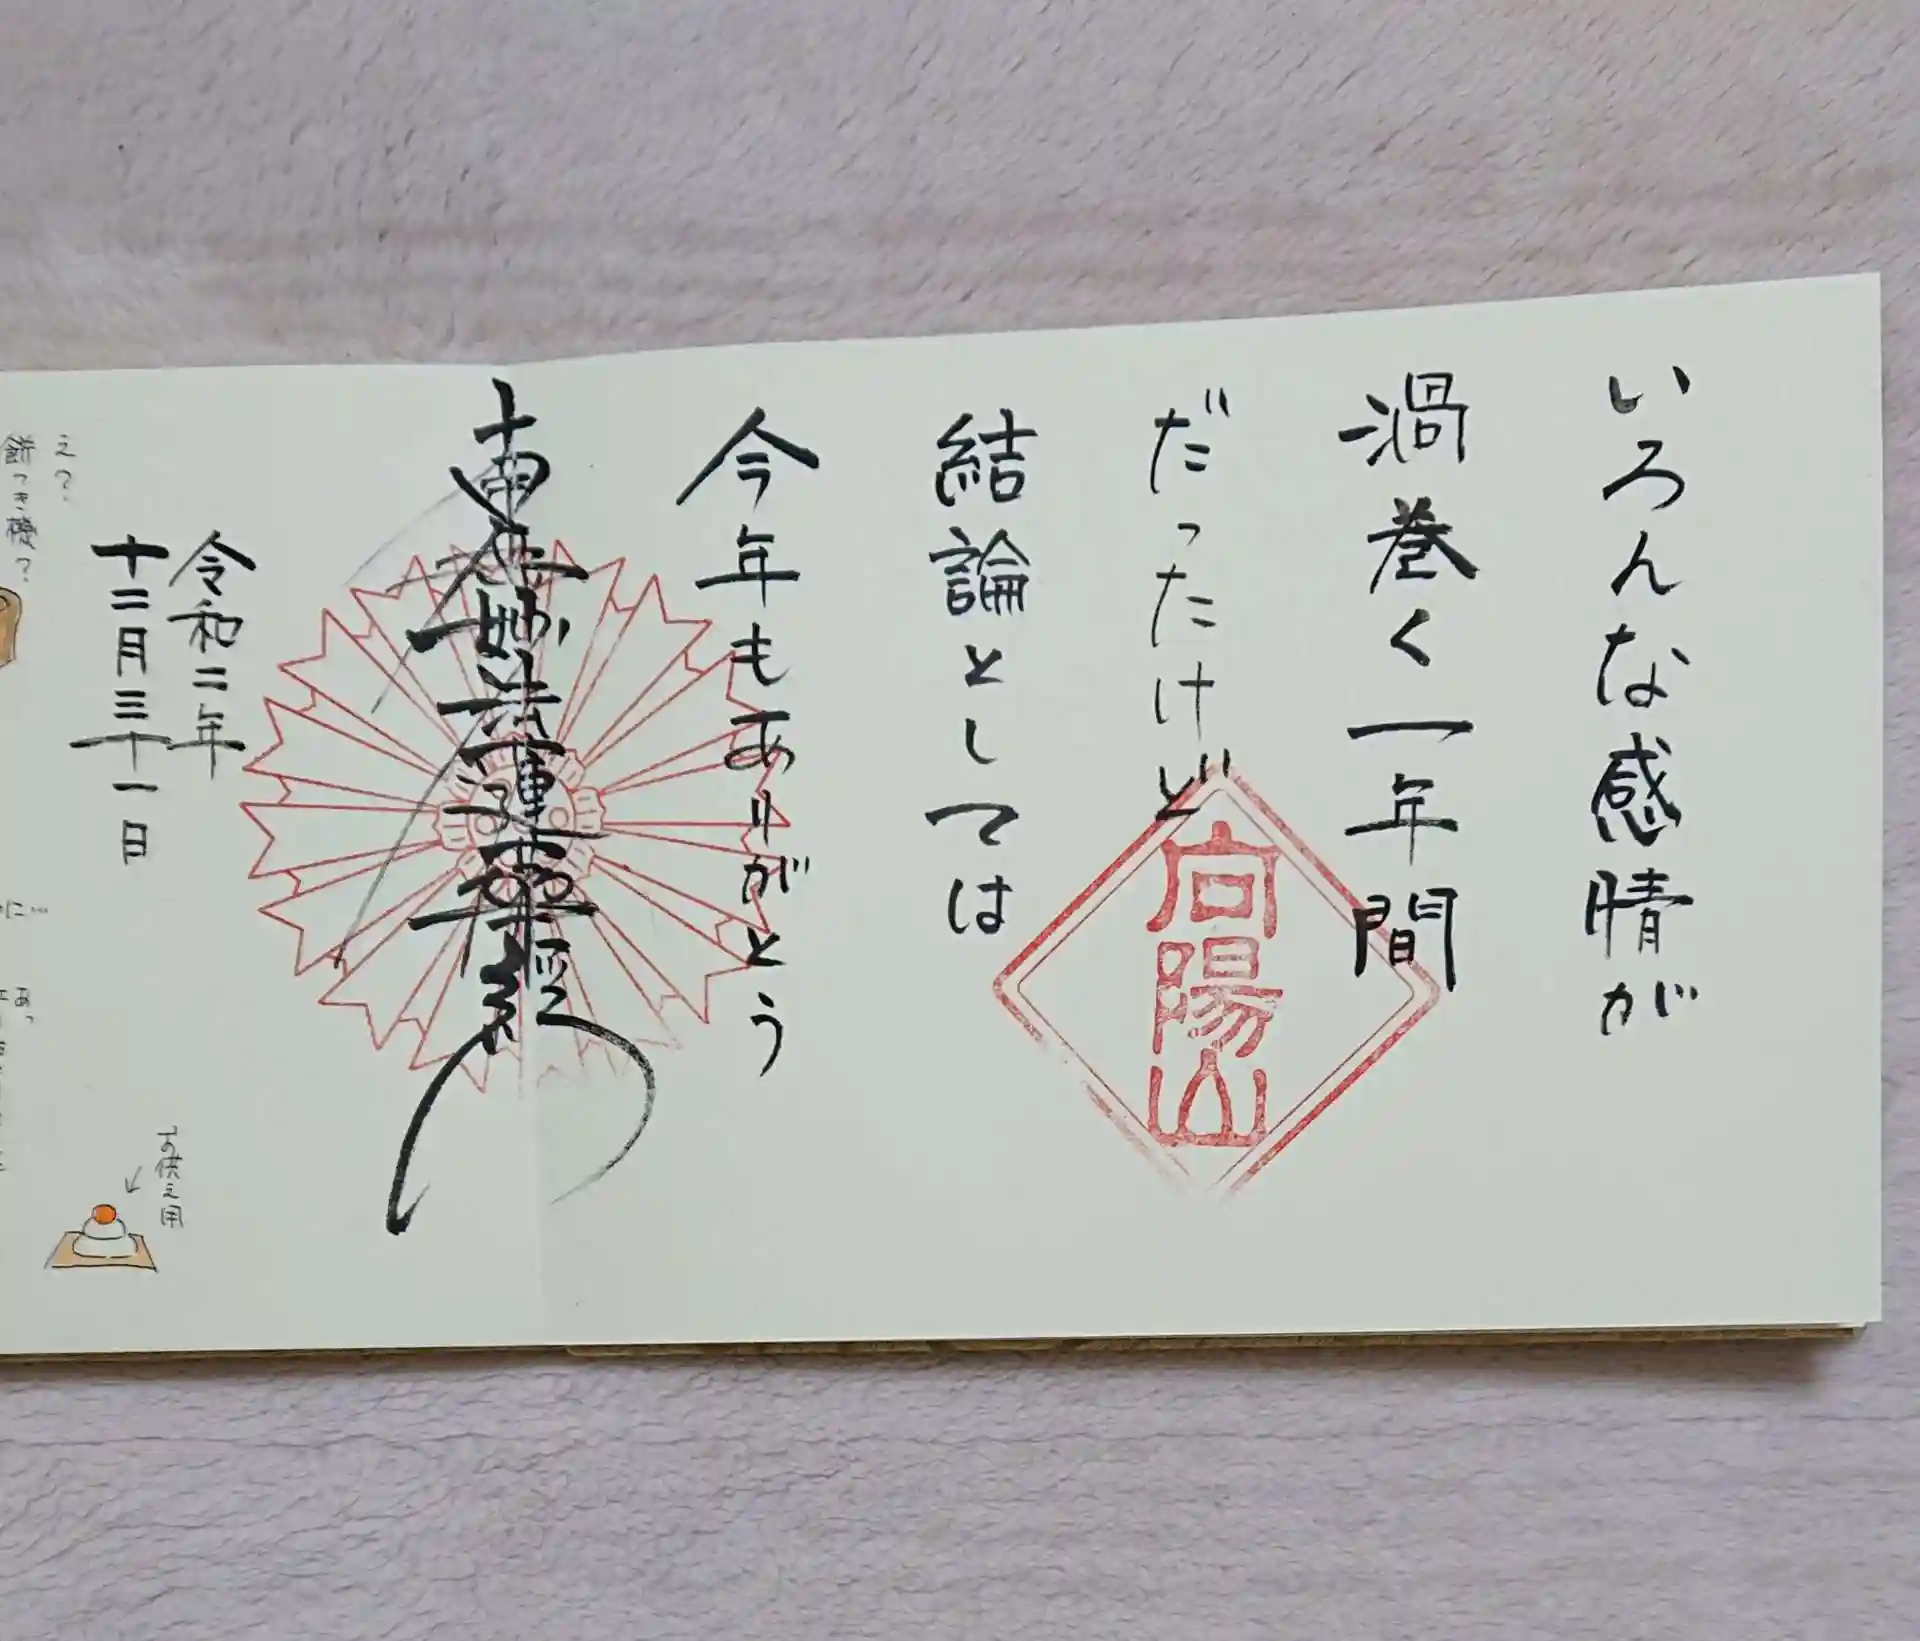 いろんな感情が
渦巻く一年間
だったけど
向陽山
結論としては
今年もありがとう
南無妙法蓮華経
令和二年
十二月三十一日
お供え用
え?
餅つき機?